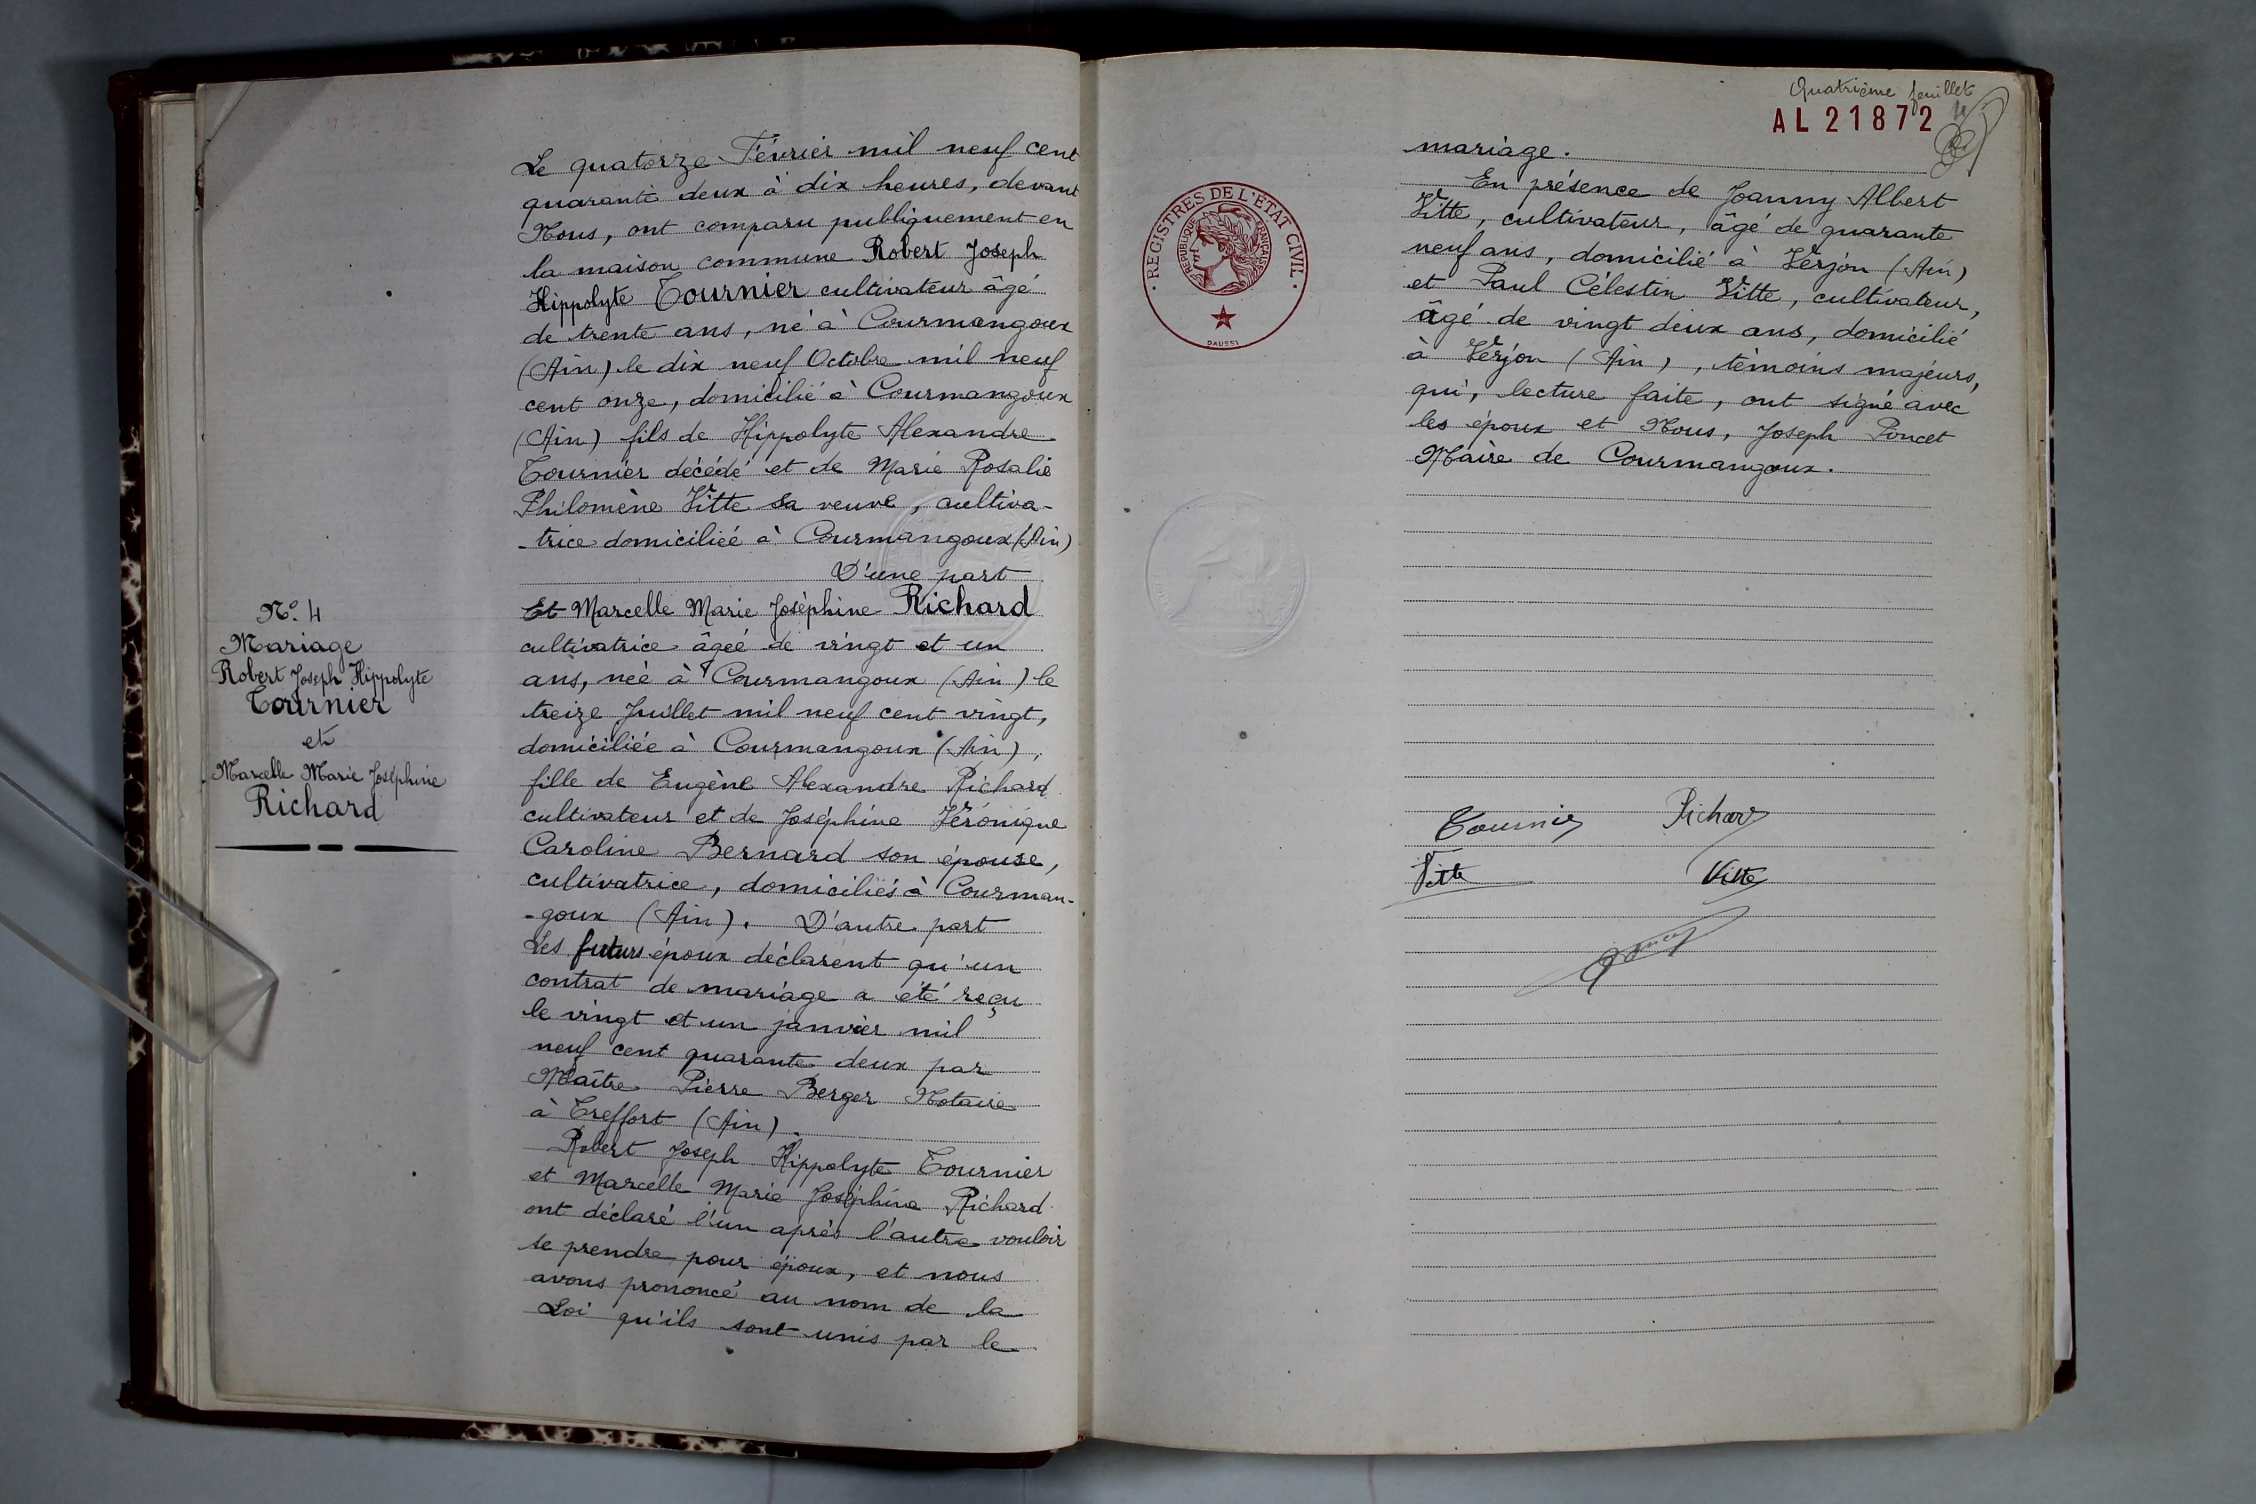 N° 4
Mariage
Robert Joseph Hippolyte
Tournier
et
Marcelle Marie Joséphine
Richard
Le quatorze Février mil neuf cent
quarante deux à dix heures, devant
Nous, ont comparu publiquement en
la maison commune Robert Joseph
Hippolyte Tournier cultivateur âgé
de trente ans, né à Courmangoux
(Ain) le dix neuf Octobre mil neuf
cent onze, domicilié à Courmangoux
(Ain) fils de Hippolyte Alexandre
Tournier décédé et de Marie Rosalie
Philomène Vitte sa veuve, cultiva-
-trice domiciliée à Courmangoux (Ain)
D'une part
Et Marcelle Marie Joséphine Richard
cultivatrice âgée de vingt et un
ans, née à Courmangoux (Ain) le
treize Juillet mil neuf cent vingt,
domiciliée à Courmangoux (Ain),
fille de Eugène Alexandre Richard
cultivateur et de Joséphine Véronique
Caroline Bernard son épouse,
cultivatrice, domiciliés à Courman-
-goux (Ain). D'autre part
Les futurs époux déclarent qu'un
contrat de mariage a été reçu
le vingt et un janvier mil
neuf cent quarante deux par
Maître Pierre Berger Notaire
à Treffort (Ain).
Robert Joseph Hippolyte Tournier
et Marcelle Marie Joséphine Richard
ont déclaré l'un après l'autre vouloir
se prendre pour époux, et nous
avons prononcé au nom de la
Loi qu'ils sont unis par le
Quatrième feuillet
AL 21872
REGISTRES DE L'ETAT CIVIL
REPUBLIQUE FRANÇAISE
DAUSSY
mariage.
En présence de Joanny Albert
Vitte, cultivateur, âgé de quarante
neuf ans, domicilié à Verjon (Ain)
et Paul Célestin Vitte, cultivateur,
âgé de vingt deux ans, domicilié
à Verjon (Ain), témoins majeurs,
qui, lecture faite, ont signé avec
les époux et Nous, Joseph Poncet
Maire de Courmangoux.
Tournier Richard
Vitte Vitte
Poncet